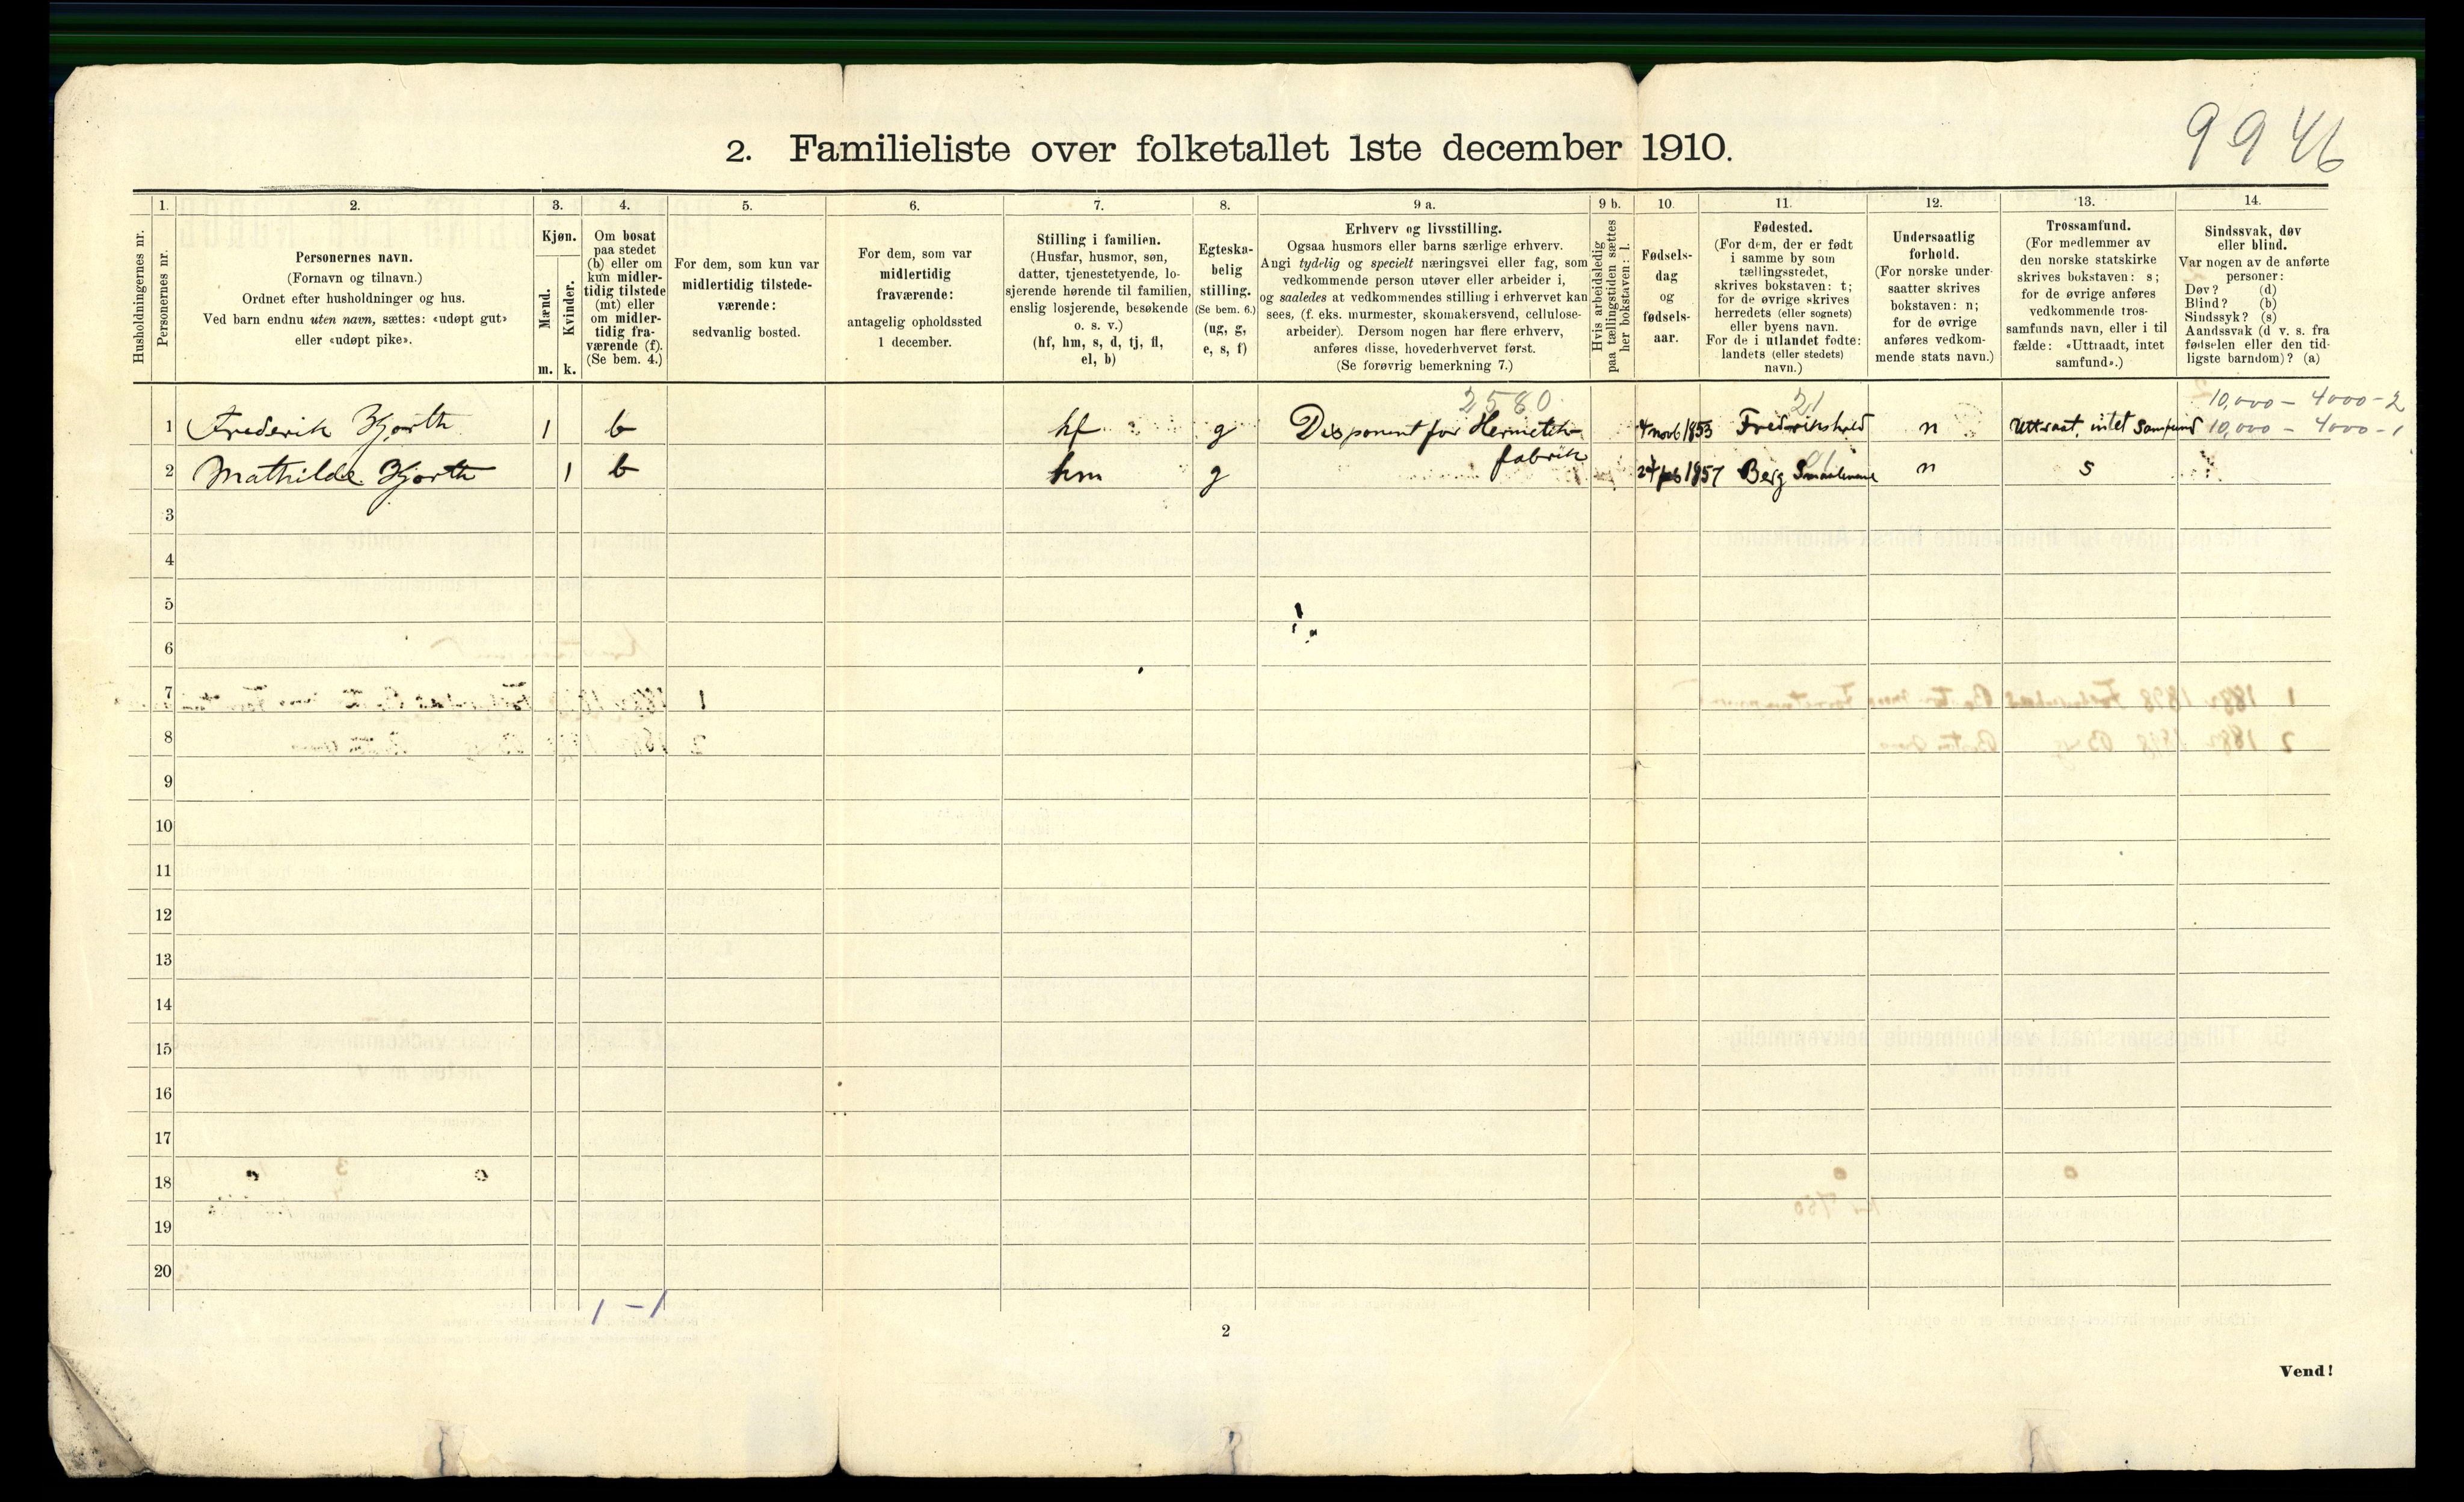 9946
2. Familieliste over folketallet 1ste december 1910.
Husholdningernes nr.
1.
Personernes nr.
2.
Personernes navn.
(Fornavn og tilnavn.)
Ordnet efter husholdninger og hus.
Ved barn endnu uten navn, sættes: «udøpt gut»
eller «udøpt pike».
3.
Kjøn.
Mænd.
Kvinder.
m. k.
4.
Om bosat
paa stedet
(b) eller om
kun midler-
tidig tilstede
(mt) eller
om midler-
tidig fra-
værende (f).
(Se bem. 4.)
5.
For dem, som kun var
midlertidig tilstede-
værende:
sedvanlig bosted.
6.
For dem, som var
midlertidig
fraværende:
antagelig opholdssted
1 december.
7.
Stilling i familien.
(Husfar, husmor, søn,
datter, tjenestetyende, lo-
sjerende hørende til familien,
enslig losjerende, besøkende
o. s. v.)
(hf, hm, s, d, tj, fl,
el, b)
8.
Egteska-
belig
stilling.
(Se bem. 6.)
(ug, g,
e, s, f)
9 a.
Erhverv og livsstilling.
Ogsaa husmors eller barns særlige erhverv.
Angi tydelig og specielt næringsvei eller fag, som
vedkommende person utøver eller arbeider i,
og saaledes at vedkommendes stilling i erhvervet kan
sees, (f. eks. murmester, skomakersvend, cellulose-
arbeider). Dersom nogen har flere erhverv,
anføres disse, hovederhvervet først.
(Se forøvrig bemerkning 7.)
9 b.
Hvis arbeidsledig
paa tællingstiden sættes
her bokstaven: l.
10.
Fødsels-
dag
og
fødsels-
aar.
11.
Fødested.
(For dem, der er født
i samme by som
tællingsstedet,
skrives bokstaven: t;
for de øvrige skrives
herredets (eller sognets)
eller byens navn.
For de i utlandet fødte:
landets (eller stedets)
navn.)
12.
Undersaatlig
forhold.
(For norske under-
saatter skrives
bokstaven: n;
for de øvrige
anføres vedkom-
mende stats navn.)
13.
Trossamfund.
(For medlemmer av
den norske statskirke
skrives bokstaven: s;
for de øvrige anføres
vedkommende tros-
samfunds navn, eller i til
fælde: «Uttraadt, intet
samfund».)
14.
Sindssvak, døv
eller blind.
Var nogen av de anførte
personer:
Døv? (d)
Blind? (b)
Sindssyk? (s)
Aandssvak (d v. s. fra
fødselen eller den tid-
ligste barndom)? (a)
2580 21 10,000 - 4000 - 2
1 Frederik Hjorth 1 b hf g Disponent for Hermetik- 4 novb 1853 Fredrikshald n Uttraat, intet samfund 10,000 - 4000 - 1
fabrik
2 Mathilde Hjorth 1 b hm g 24 feb 1857 Berg Smaalenene n s
3
4
5
6
7
8
9
10
11
12
13
14
15
16
17
18
19
20
1 - 1
2
Vend!